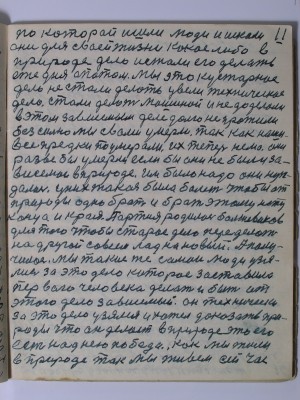 по которай ишли люди и искали 11
они для своей жизни какое либо в
природе дело и стали его делать
это дня а потом. Мы это кустарное
дело не стали делать увели техническое
дело, стали делать машиной и не доделали
в этом зависимым деле дело не хватило
без силно мы свали умерли, так как наши
все предки поумерали, их теперь нема. они
разве бы умерли если бы они не были за-
висемое в природе. им было надо они нуж-
дались, у них такая была болезь чтобы от
природы одно брать и брать этому нету
конца и края. Партия родилась большевиков
для того чтобы старое дело переделать
на другой совсем лад на новый. А полу-
чилось. мы такие же самые люди узя-
лись за это дело которое заставило
первого человека делать и быть от
этого дела зависимый. он технически
за это дело узялся и хотел доказать при-
роды что он делает в природе это его
есть на днею победа., как мы жили
в природе так мы живем сей час